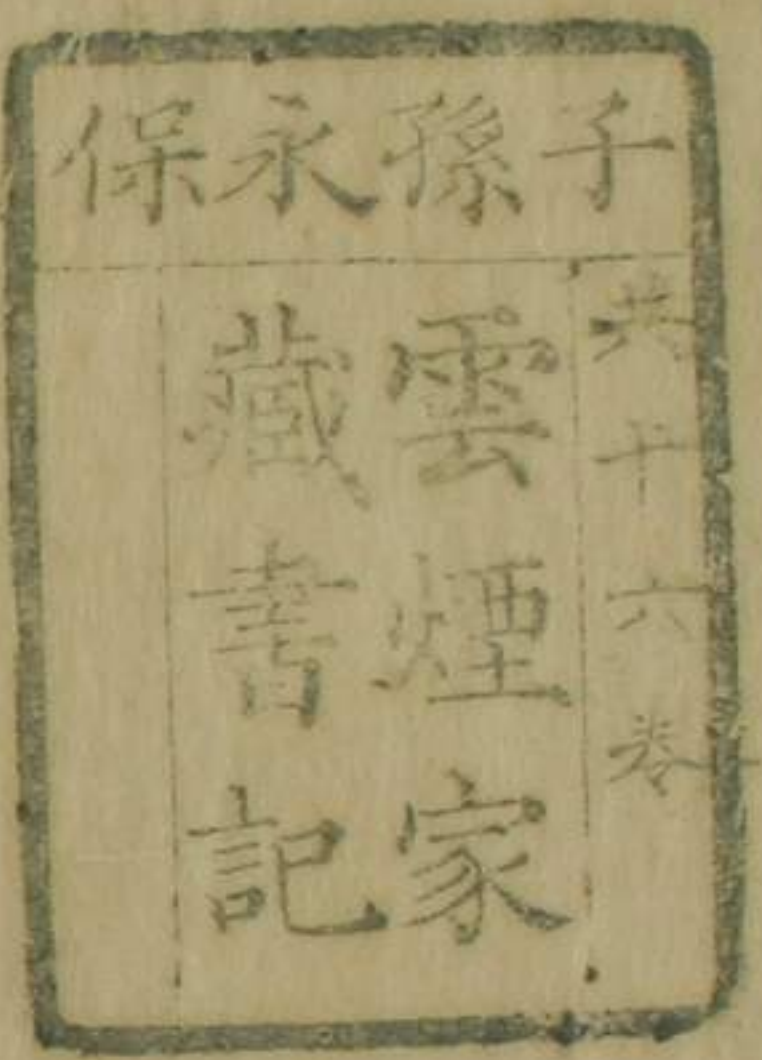 子孫永保
共十六卷
雲煙家
藏書記